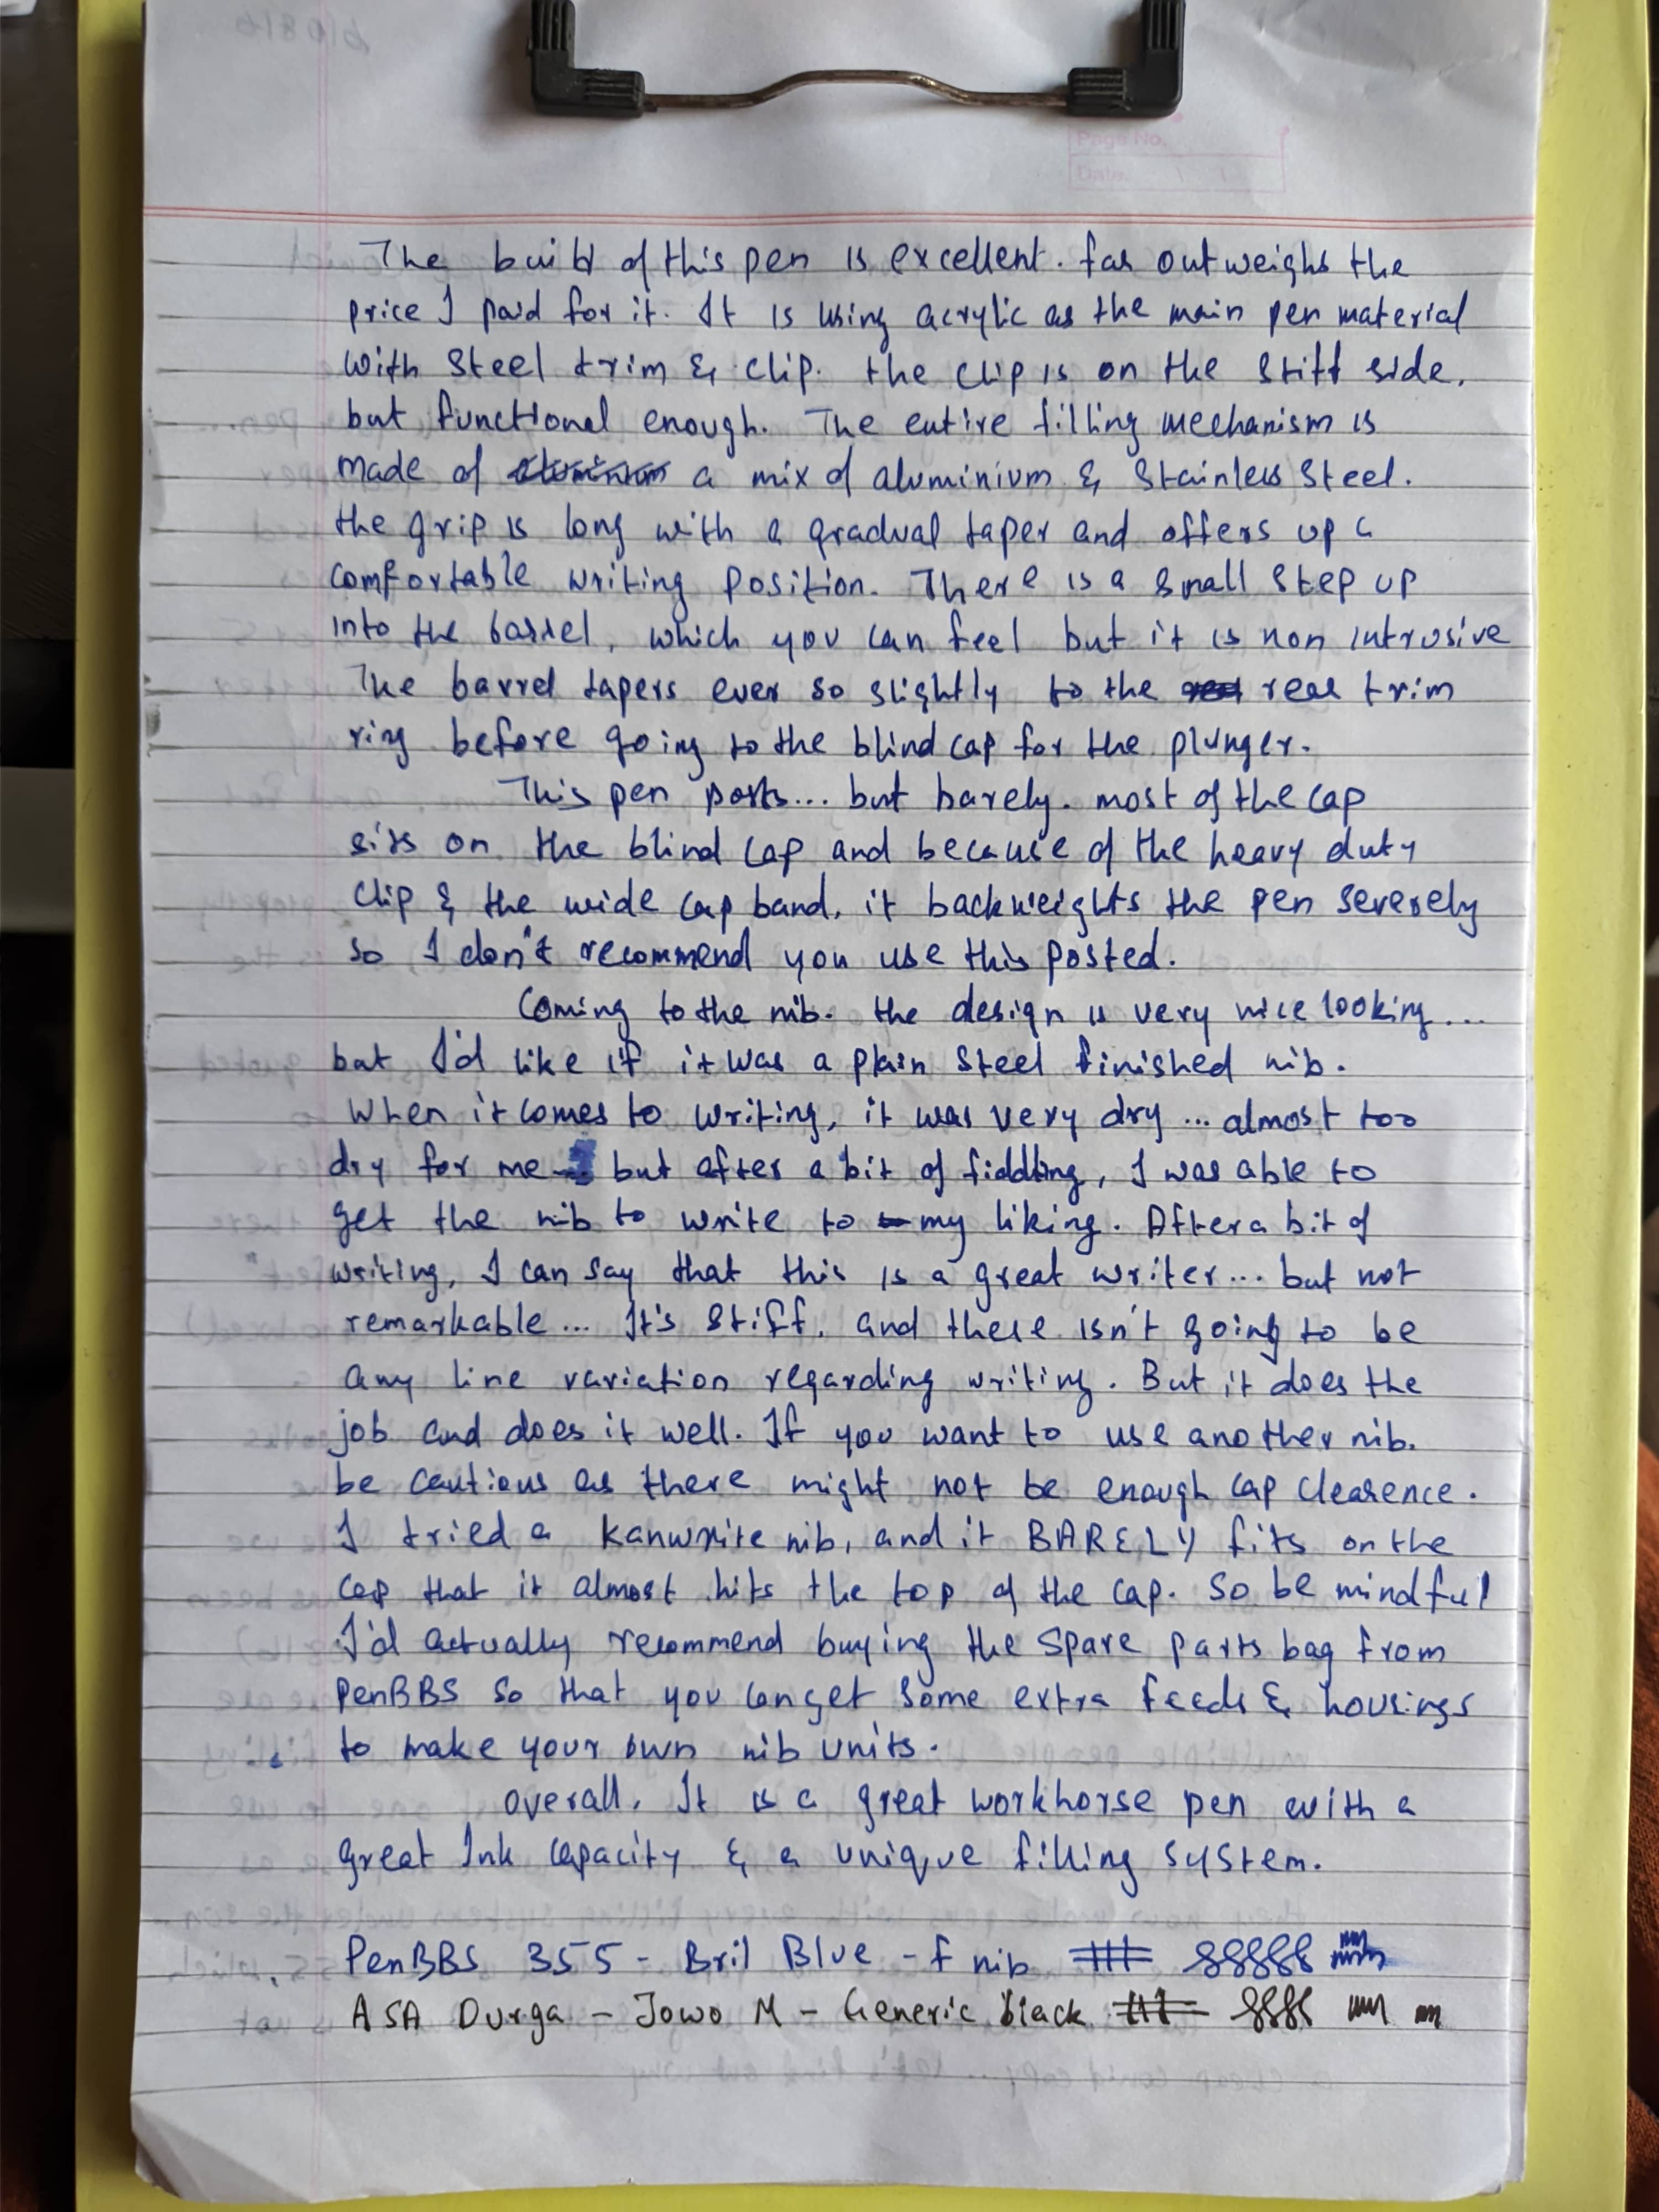 Page No.
Date.
The build of this pen is excellent. far outweighs the
price I paid for it. It is using acrylic as the main pen material
with Steel trim & clip. the clip is on the stiff side,
but functional enough. The entire filling mechanism is
made of aluminium a mix of aluminium & Stainless Steel.
the grip is long with a gradual taper and offers up a
comfortable writing position. There is a small step up
into the barrel, which you can feel but it is non intrusive
The barrel tapers ever so slightly to the rear trim
ring before going to the blind cap for the plunger.
This pen posts... but barely. most of the cap
sits on the blind cap and because of the heavy duty
clip & the wide cap band, it backweights the pen severely
so I don't recommend you use this posted.
Coming to the nib. the design is very nice looking...
but I'd like if it was a plain steel finished nib.
When it comes to writing, it was very dry ... almost too
dry for me but after a bit of fiddling, I was able to
get the nib to write to my liking. After a bit of
writing, I can say that this is a great writer... but not
remarkable... It's stiff, and there isn't going to be
any line variation regarding writing. But it does the
job and does it well. If you want to use another nib.
be cautious as there might not be enough cap clearence.
I tried a Kanwrite nib, and it BARELY fits on the
cap that it almost hits the top of the cap. So be mindful
I'd actually recommend buying the spare parts bag from
PenBBS so that you can get some extra feeds & housings
to make your own nib units.
overall, It is a great workhorse pen with a
great Ink capacity & a unique filling system.
PenBBS 355 - Bril Blue - f nib
ASA Durga - Jowo M - Generic black